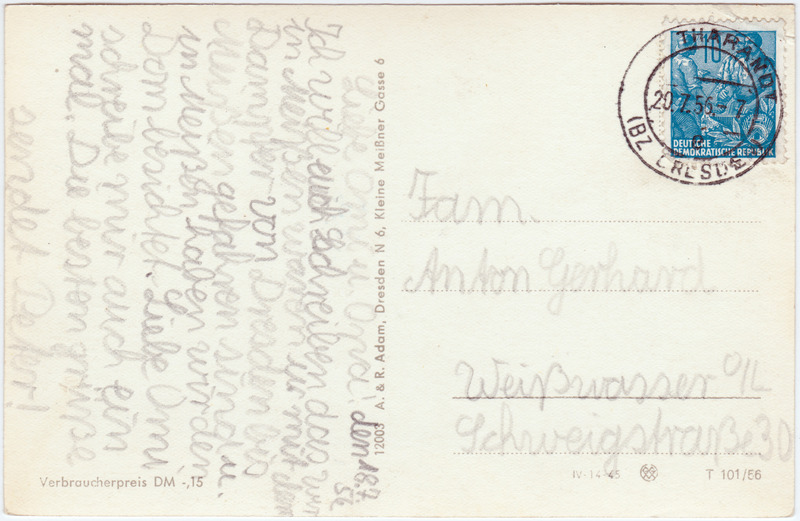 Liebe Omi u. Opi! den 18.7.
56
Ich will euch schreiben das wir
in Meißen waren u. mit dem
Dampfer von Dresden bis
Meißen gefahren sind u.
in Meißen haben wir den
Dom besichtet. Liebe Omi
schreibe mir auch ein
mal. Die besten grüße
sendet Peter!
Verbraucherpreis DM -,15
12003 A. & R. Adam, Dresden N 6, Kleine Meißner Gasse 6
10
DEUTSCHE
DEMOKRATISCHE REPUBLIK
THARANDT
20.7.56-7
(BZ DRESDEN)
Fam.
Anton Gerhard
Weißwasser O/L
Schweigstraße 30
IV-14-45
T 101/56